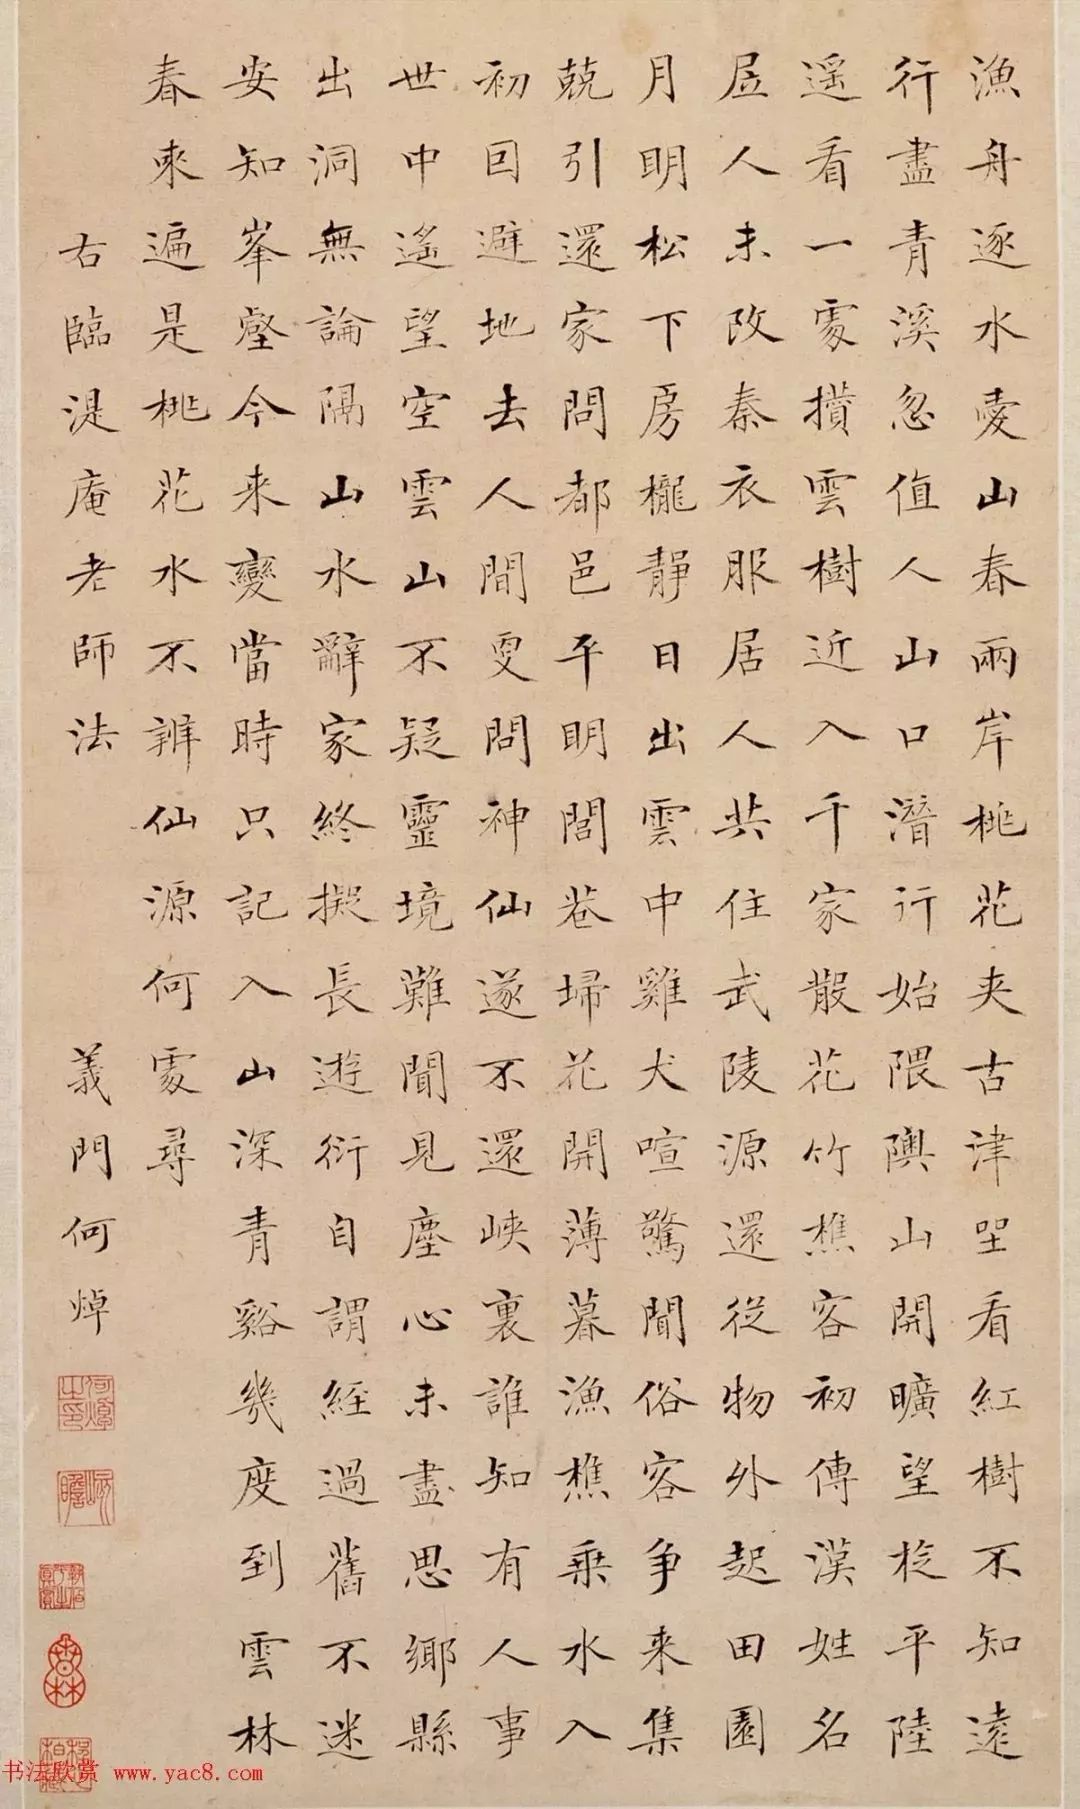 漁舟逐水愛山春兩岸桃花夾古津坐看紅樹不知遠
行盡青溪忽值人山口潛行始隈隩山開曠望旋平陸
遥看一處攢雲樹近入千家散花竹樵客初傳漢姓名
居人未改秦衣服居人共住武陵源還從物外起田園
月明松下房櫳靜日出雲中雞犬喧驚聞俗客争来集
兢引還家問都邑平明閭巷埽花開薄暮漁樵乗水入
初因避地去人間更問神仙遂不還峽裏誰知有人事
世中遙望空雲山不疑靈境難聞見塵心未盡思鄉縣
出洞無論隔山水辭家終擬長遊衍自謂經過舊不迷
安知峯壑今来變當時只記入山深青谿幾度到雲林
春來遍是桃花水不辨仙源何處尋
右臨湜庵老師法 義門何焯
何焯之印
屺瞻
书法欣赏 www.yac8.com